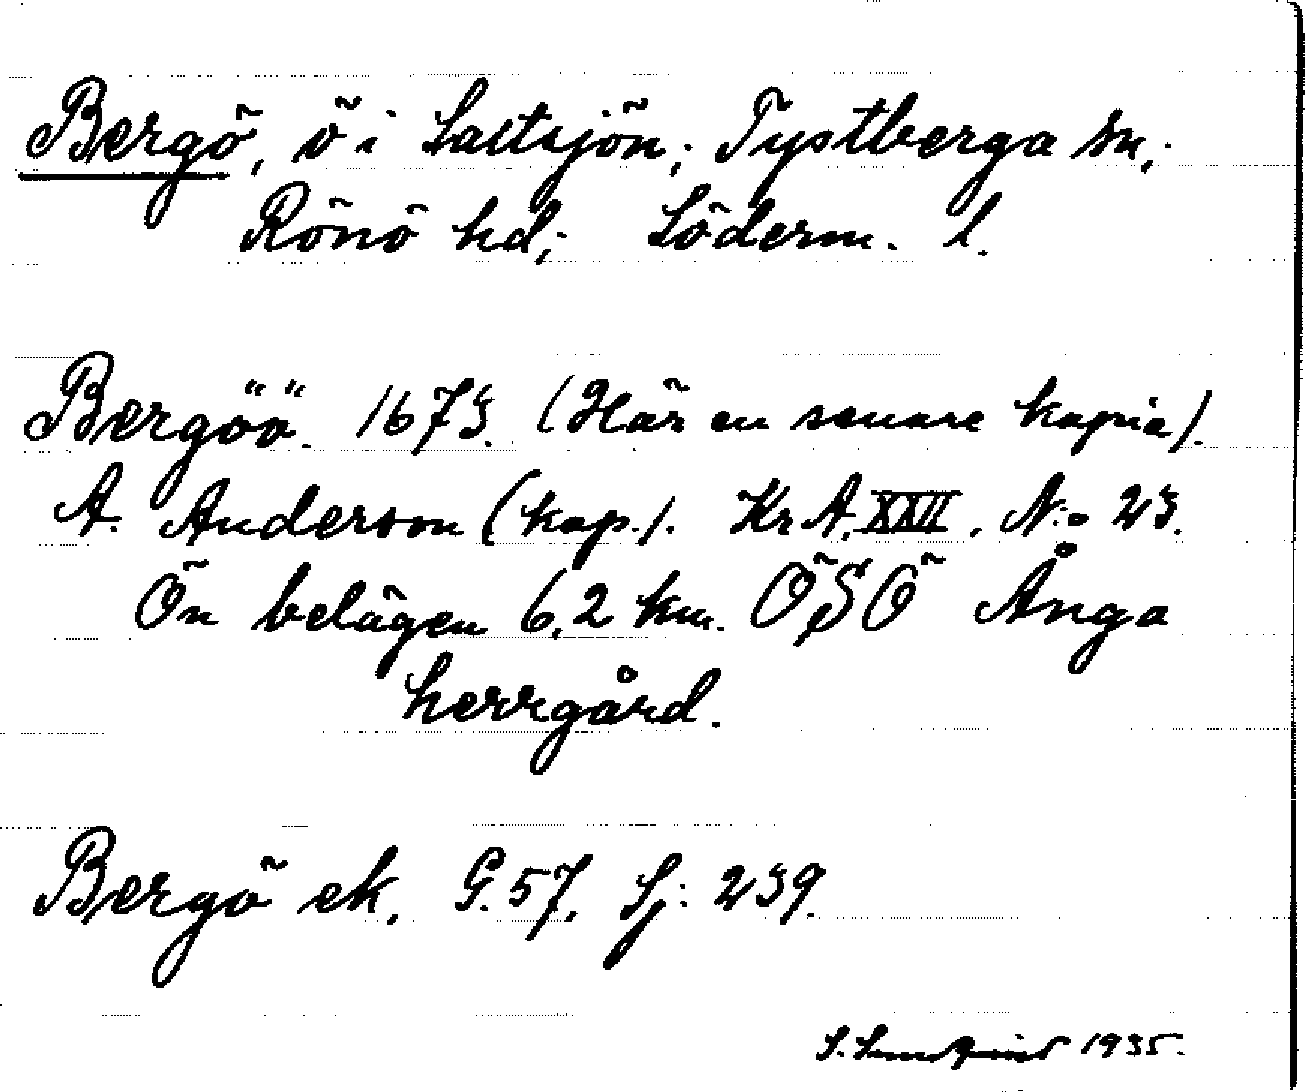 Bergö, ö i Saltsjön; Tystberga sn,;
Rönö hd,; Söderm. l.
Bergöö. 1673. (Här en senare kopia).
A. Anderson (kop.). Kr A. XXVI. No 23.
Ön belägen 6,2 km. ÖSÖ Ånga
herrgård.
Bergö ek. G. 57. Sj: 239.
S. Sundqvist 1935.